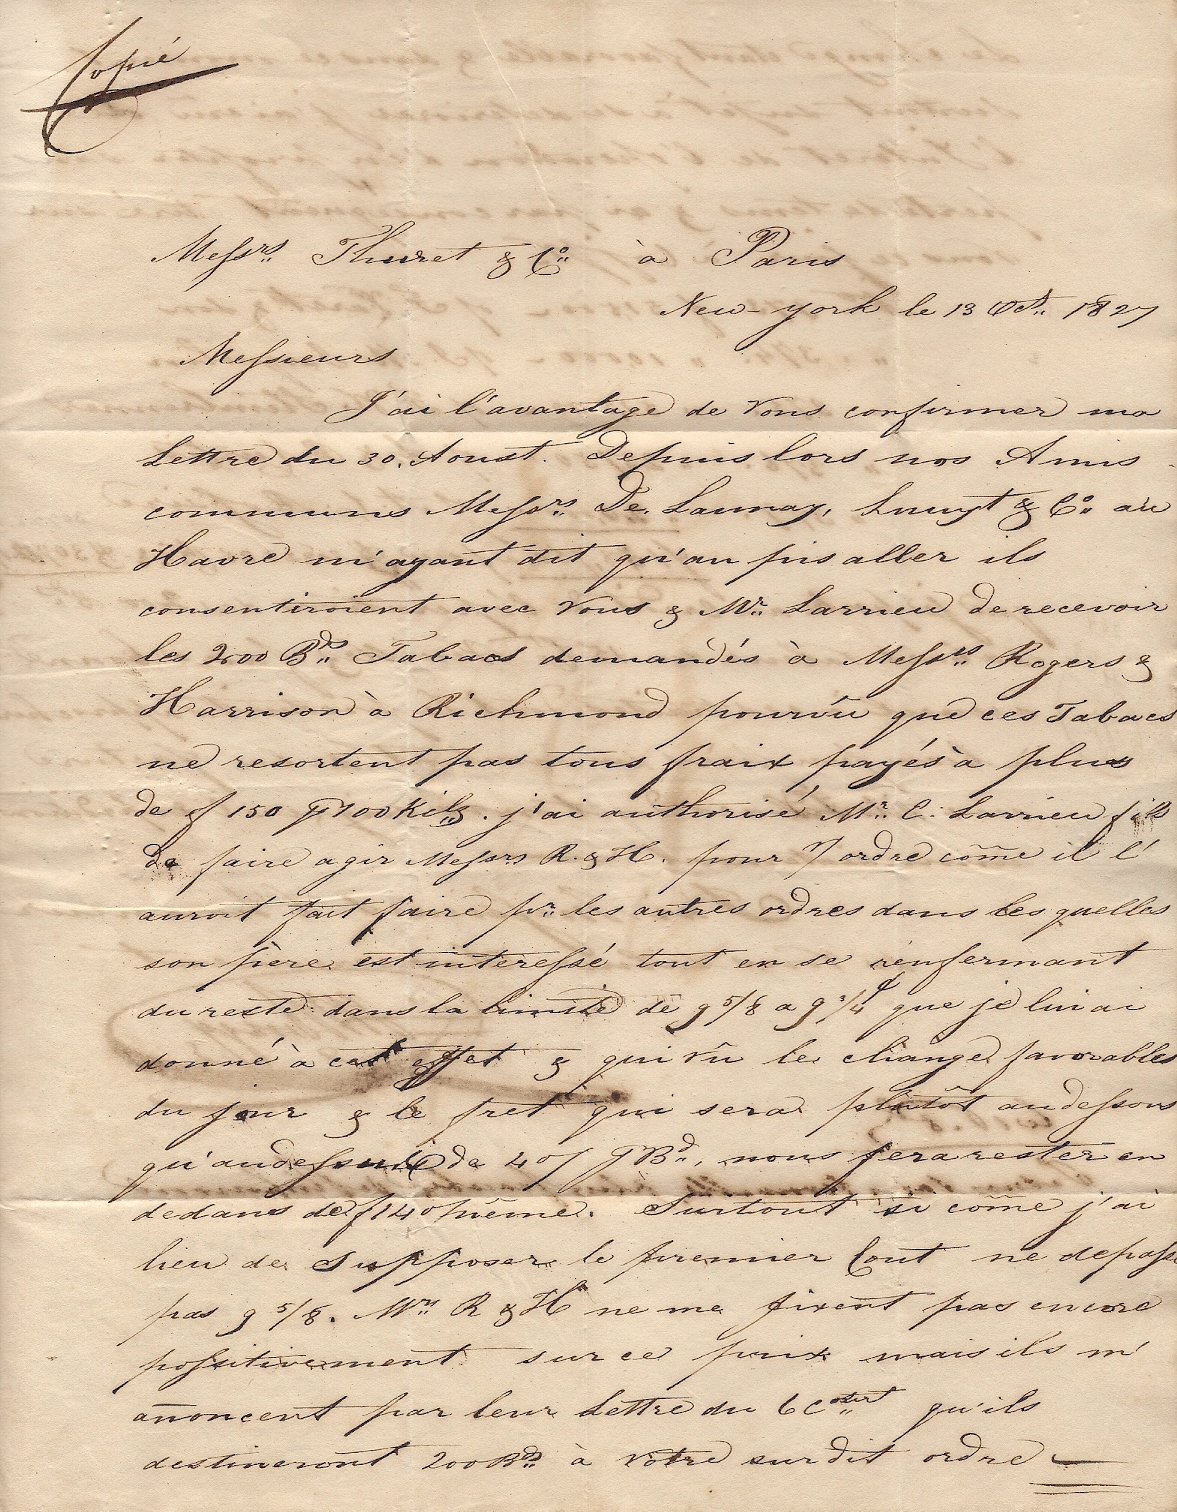 Copié
Messrs Thuret & Co à Paris
New-york le 13 Octr 1827
Messieurs
J'ai l'avantage de vous confirmer ma
Lettre du 30. Aoust. Depuis lors nos Amis
communs Messrs De Launay, Luuyt & Co au
Havre m'ayant dit qu'au pis aller ils
consentiroient avec vous & Mr Larrieu de recevoir
les 200 Bds Tabacs demandés à Messrs Rogers &
Harrison à Richmond pourvû que ces Tabacs
ne resortent pas tous fraix payés à plus
de f 150 p 100 Kilg. j'ai authorisé Mr C. Larrieu fils
de faire agir Messrs R. & H. pour n/ ordre come il l'
auroit fait faire pr les autres ordres dans lesquelles
son père est interessé tout en se renfermant
du reste dans la limite de 9 5/8 a 9 3/4 que je lui ai
donné à cet effet & qui vû le change favorables
du jour & le fret qui sera plutôt audessous
qu'audessus de 40/ p Bd, nous fera rester en
dedans de f 140 même. Surtout si come j'ai
lieu de Supposer le premier Cout ne depasse
pas 9 5/8. Mrs R & H ne me fixent pas encore
possitivement sur ce prix mais ils m'
anoncent par leur Lettre du 6 Cour qu'ils
destineront 200 Bds à votre surdit ordre